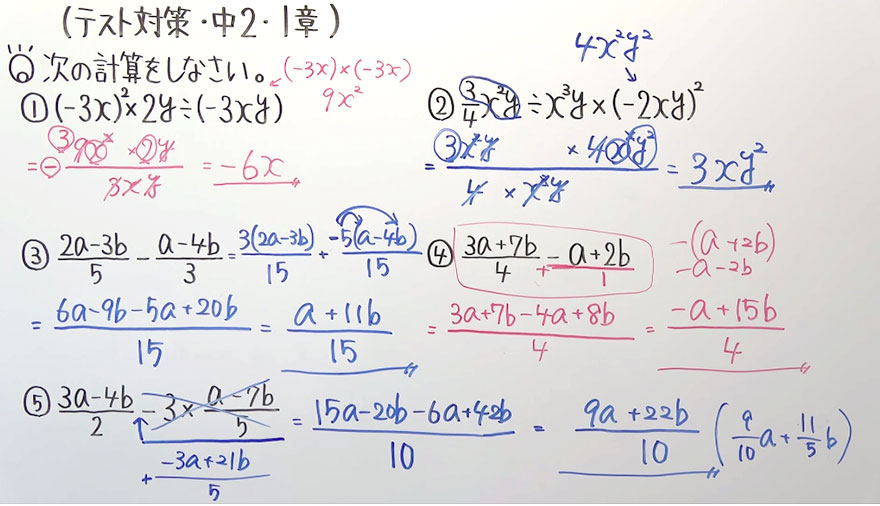 (テスト対策・中2・1章)
次の計算をしなさい。 (-3x)×(-3x)
9x²
4x²y²
① (-3x)²×2y÷(-3xy)
= - 9x²×2y / 3xy = -6x
3
② 3/4 x²y÷x³y×(-2xy)²
= 3x²y × 4x²y² / 4 × x³y = 3xy²
③ 2a-3b / 5 - a-4b / 3 = 3(2a-3b) / 15 + -5(a-4b) / 15
= 6a-9b-5a+20b / 15 = a+11b / 15
④ 3a+7b / 4 - a+2b / 1
+
-(a+2b)
-a-2b
= 3a+7b-4a+8b / 4 = -a+15b / 4
⑤ 3a-4b / 2 - 3× a-7b / 5 = 15a-20b-6a+42b / 10 = 9a+22b / 10 (9/10 a + 11/5 b)
+ -3a+21b / 5